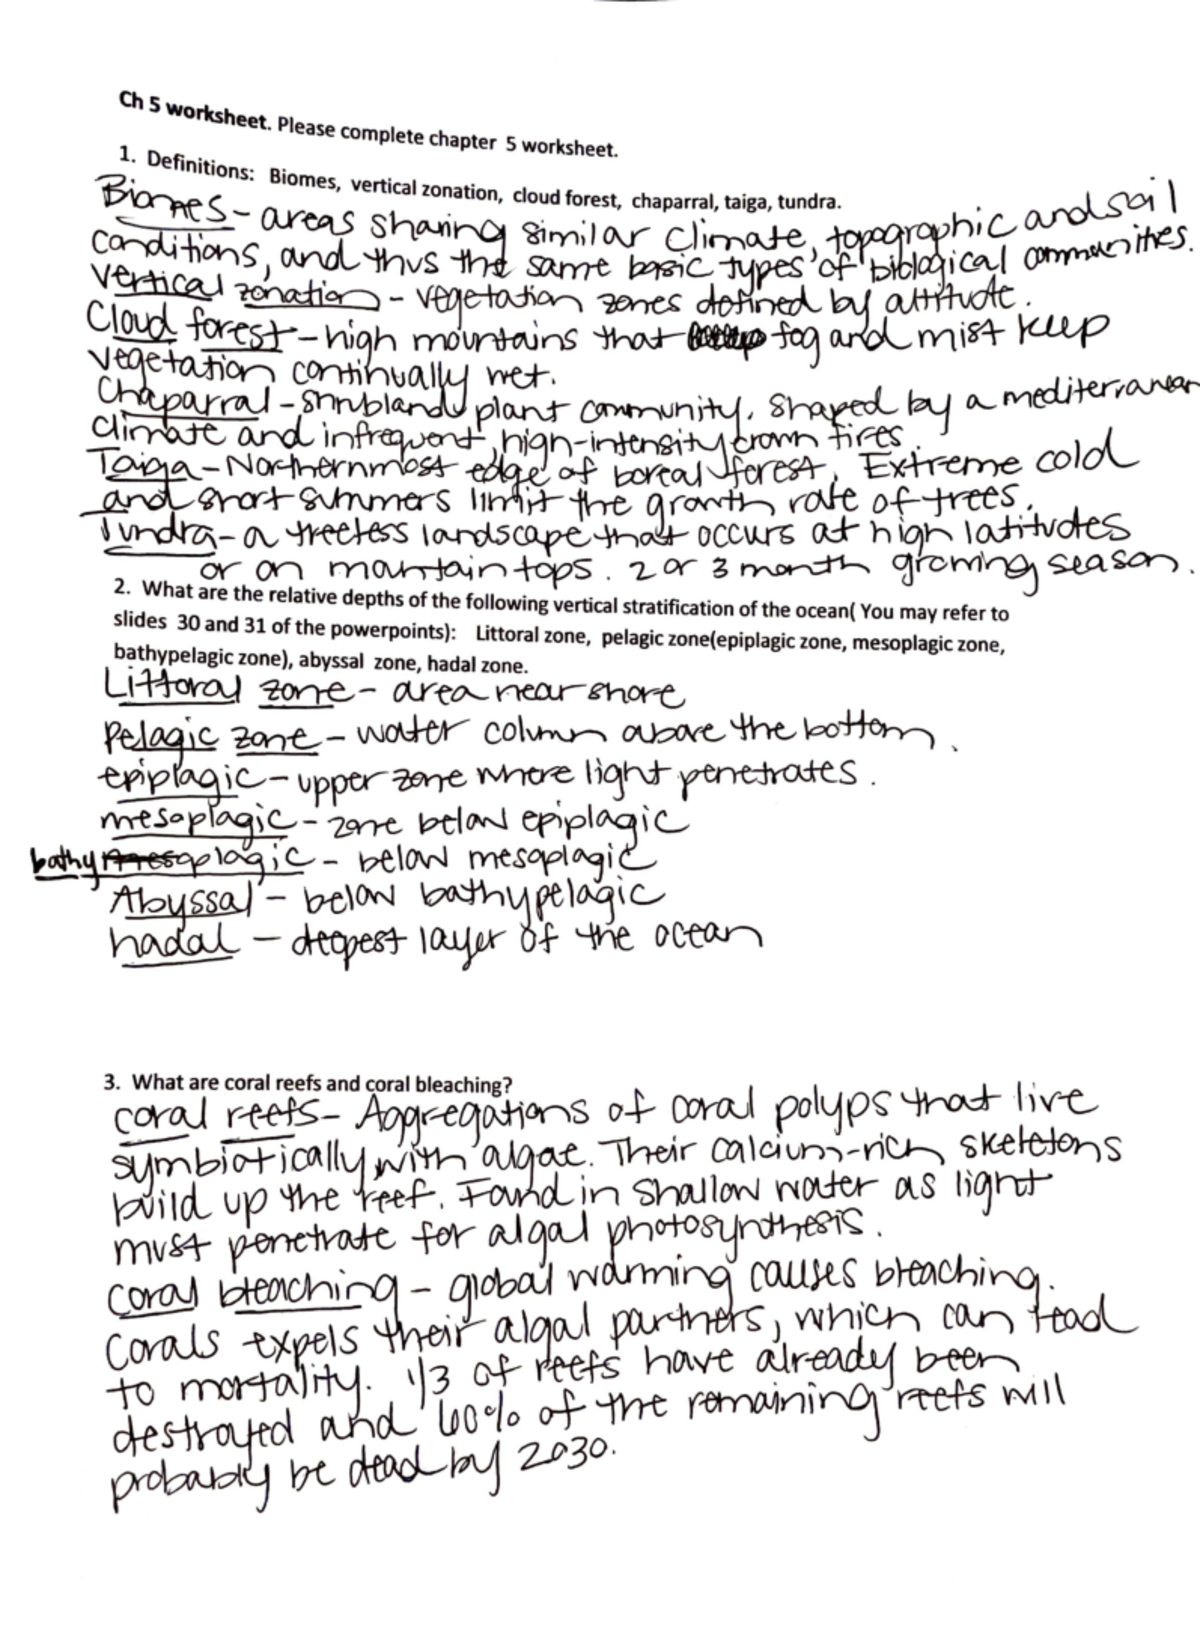 Ch 5 worksheet. Please complete chapter 5 worksheet.
1. Definitions: Biomes, vertical zonation, cloud forest, chaparral, taiga, tundra.
Biomes - areas sharing similar climate, topographic and soil
conditions, and thus the same basic types of biological communities.
Vertical zonation - vegetation zones defined by altitude.
Cloud forest - high mountains that fog and mist keep
vegetation continually wet.
Chaparral - shrubland plant community. Shaped by a mediterranean
climate and infrequent, high-intensity crown fires.
Taiga - Northernmost edge of boreal forest. Extreme cold
and short summers limit the growth rate of trees.
Tundra - a treeless landscape that occurs at high latitudes
or on mountain tops. 2 or 3 month growing season.
2. What are the relative depths of the following vertical stratification of the ocean( You may refer to
slides 30 and 31 of the powerpoints): Littoral zone, pelagic zone(epiplagic zone, mesoplagic zone,
bathypelagic zone), abyssal zone, hadal zone.
Littoral zone - area near shore
Pelagic zone - water column above the bottom.
epiplagic - upper zone where light penetrates.
mesoplagic - zone below epiplagic
bathyplagic - below mesoplagic
Abyssal - below bathypelagic
hadal - deepest layer of the ocean
3. What are coral reefs and coral bleaching?
coral reefs - Aggregations of coral polyps that live
symbiotically with algae. Their calcium-rich skeletons
build up the reef. Found in shallow water as light
must penetrate for algal photosynthesis.
coral bleaching - global warming causes bleaching.
Corals expels their algal partners, which can lead
to mortality. 1/3 of reefs have already been
destroyed and 60% of the remaining reefs will
probably be dead by 2030.